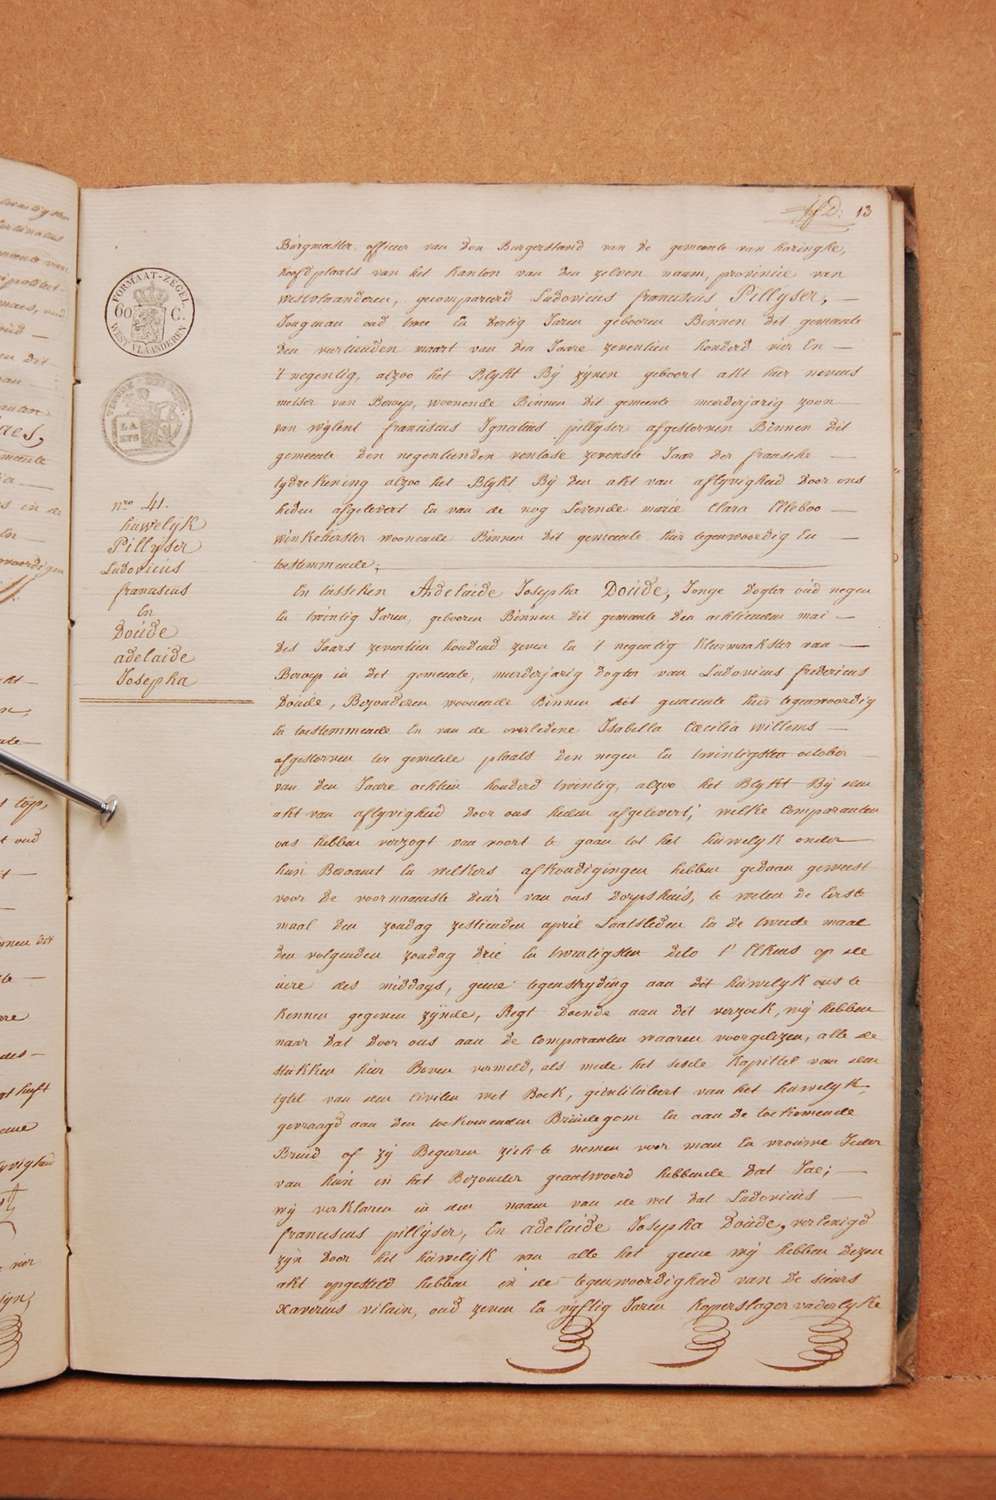 13
Burgmeester officier van den Burgerstand van de gemeente van haringhe,
hoofdplaats van het kanton van den zelven naam, provincie van
westvlaanderen, gecompareerd Ludovicus franciscus Pillyser, —
Jongman oud twee En dertig Jaren gebooren Binnen dit gemeente
den veertienden maart van den Jaare zeventien honderd vier En —
't negentig, alzoo het Blykt By zynen geboort akt hier nevens
metser van Beroep, woonende Binnen dit gemeente meerderjarig zoon
van wylent franciscus Ignatius pillyser afgestorven Binnen dit
gemeente den negentienden ventose zevenste Jaar der fransche —
tydrekening alzoo het Blykt By den akt van aflyvigheid door ons
heden afgelevert En van de nog Levende marie Clara Elleboo —
winkelierster woonende Binnen dit gemeente hier tegenwoordig En —
toestemmende;
FORMAAT-ZEGEL
60 C.
WEST VLAANDEREN
nro 41.
huwelyk
Pillyser
Ludovicus
franciscus
En
Doude
adelaide
Josepha
En tusschen Adelaide Josepha Doude, Jonge dogter oud negen
En twintig Jaren, gebooren Binnen dit gemeente den achtienden mai —
des Jaars zeventien honderd zeven En 't negentig kleermaakster van —
Beroep in dit gemeente, meerderjarig dogter van Ludovicus fredericus
Doude, Bezonderen woonende Binnen dit gemeente hier tegenwoordig
En toestemmende En van de overledene Isabella Cæcilia Willems —
afgestorven ter gemelde plaats den negen En twintigsten october
van den Jaare achtien honderd twintig, alzoo het Blykt By den
akt van aflyvigheid door ons heden afgelevert; welke comparanten
ons hebben verzogt van voort te gaan tot het huwelyk onder —
hun Beraamt En welkers afkondigingen hebben gedaan geweest
voor de voornaamste deur van ons dorpshuis, te weten de Eerste
maal den zondag zestienden april Laatsleden En de tweede maal
den volgenden zondag drie En twintigsten dito t' Elkens op de
uere des middags, geene tegenstryding aan dit huwelyk ons te
kennen gegeven zynde, Regt doende aan dit verzoek, wy hebben
naar dat door ons aan de comparanten waaren voorgelezen, alle de
stukken hier Boven vermeld, als mede het sesde kapittel van den
tytel van den Civilen wet Boek, geintituleert van het huwelyk,
gevraagd aan den toekomenden Bruidegom En aan de toekomende
Bruid of zy Begeeren zich te nemen voor man En vrouwe Jeder
van hun in het Bezonder geantwoord hebbende dat Jae; —
wy verklaren in den naam van de wet dat Ludovicus —
franciscus pillyser, En adelaide Josepha Doude, vereenigd
zyn door het huwelyk van alle het geene wy hebben dezen
akt opgesteld hebben in de tegenwoordigheid van de sieurs
xaverius vilain, oud zeven En vyftig Jaren kaperslager vaderlyke